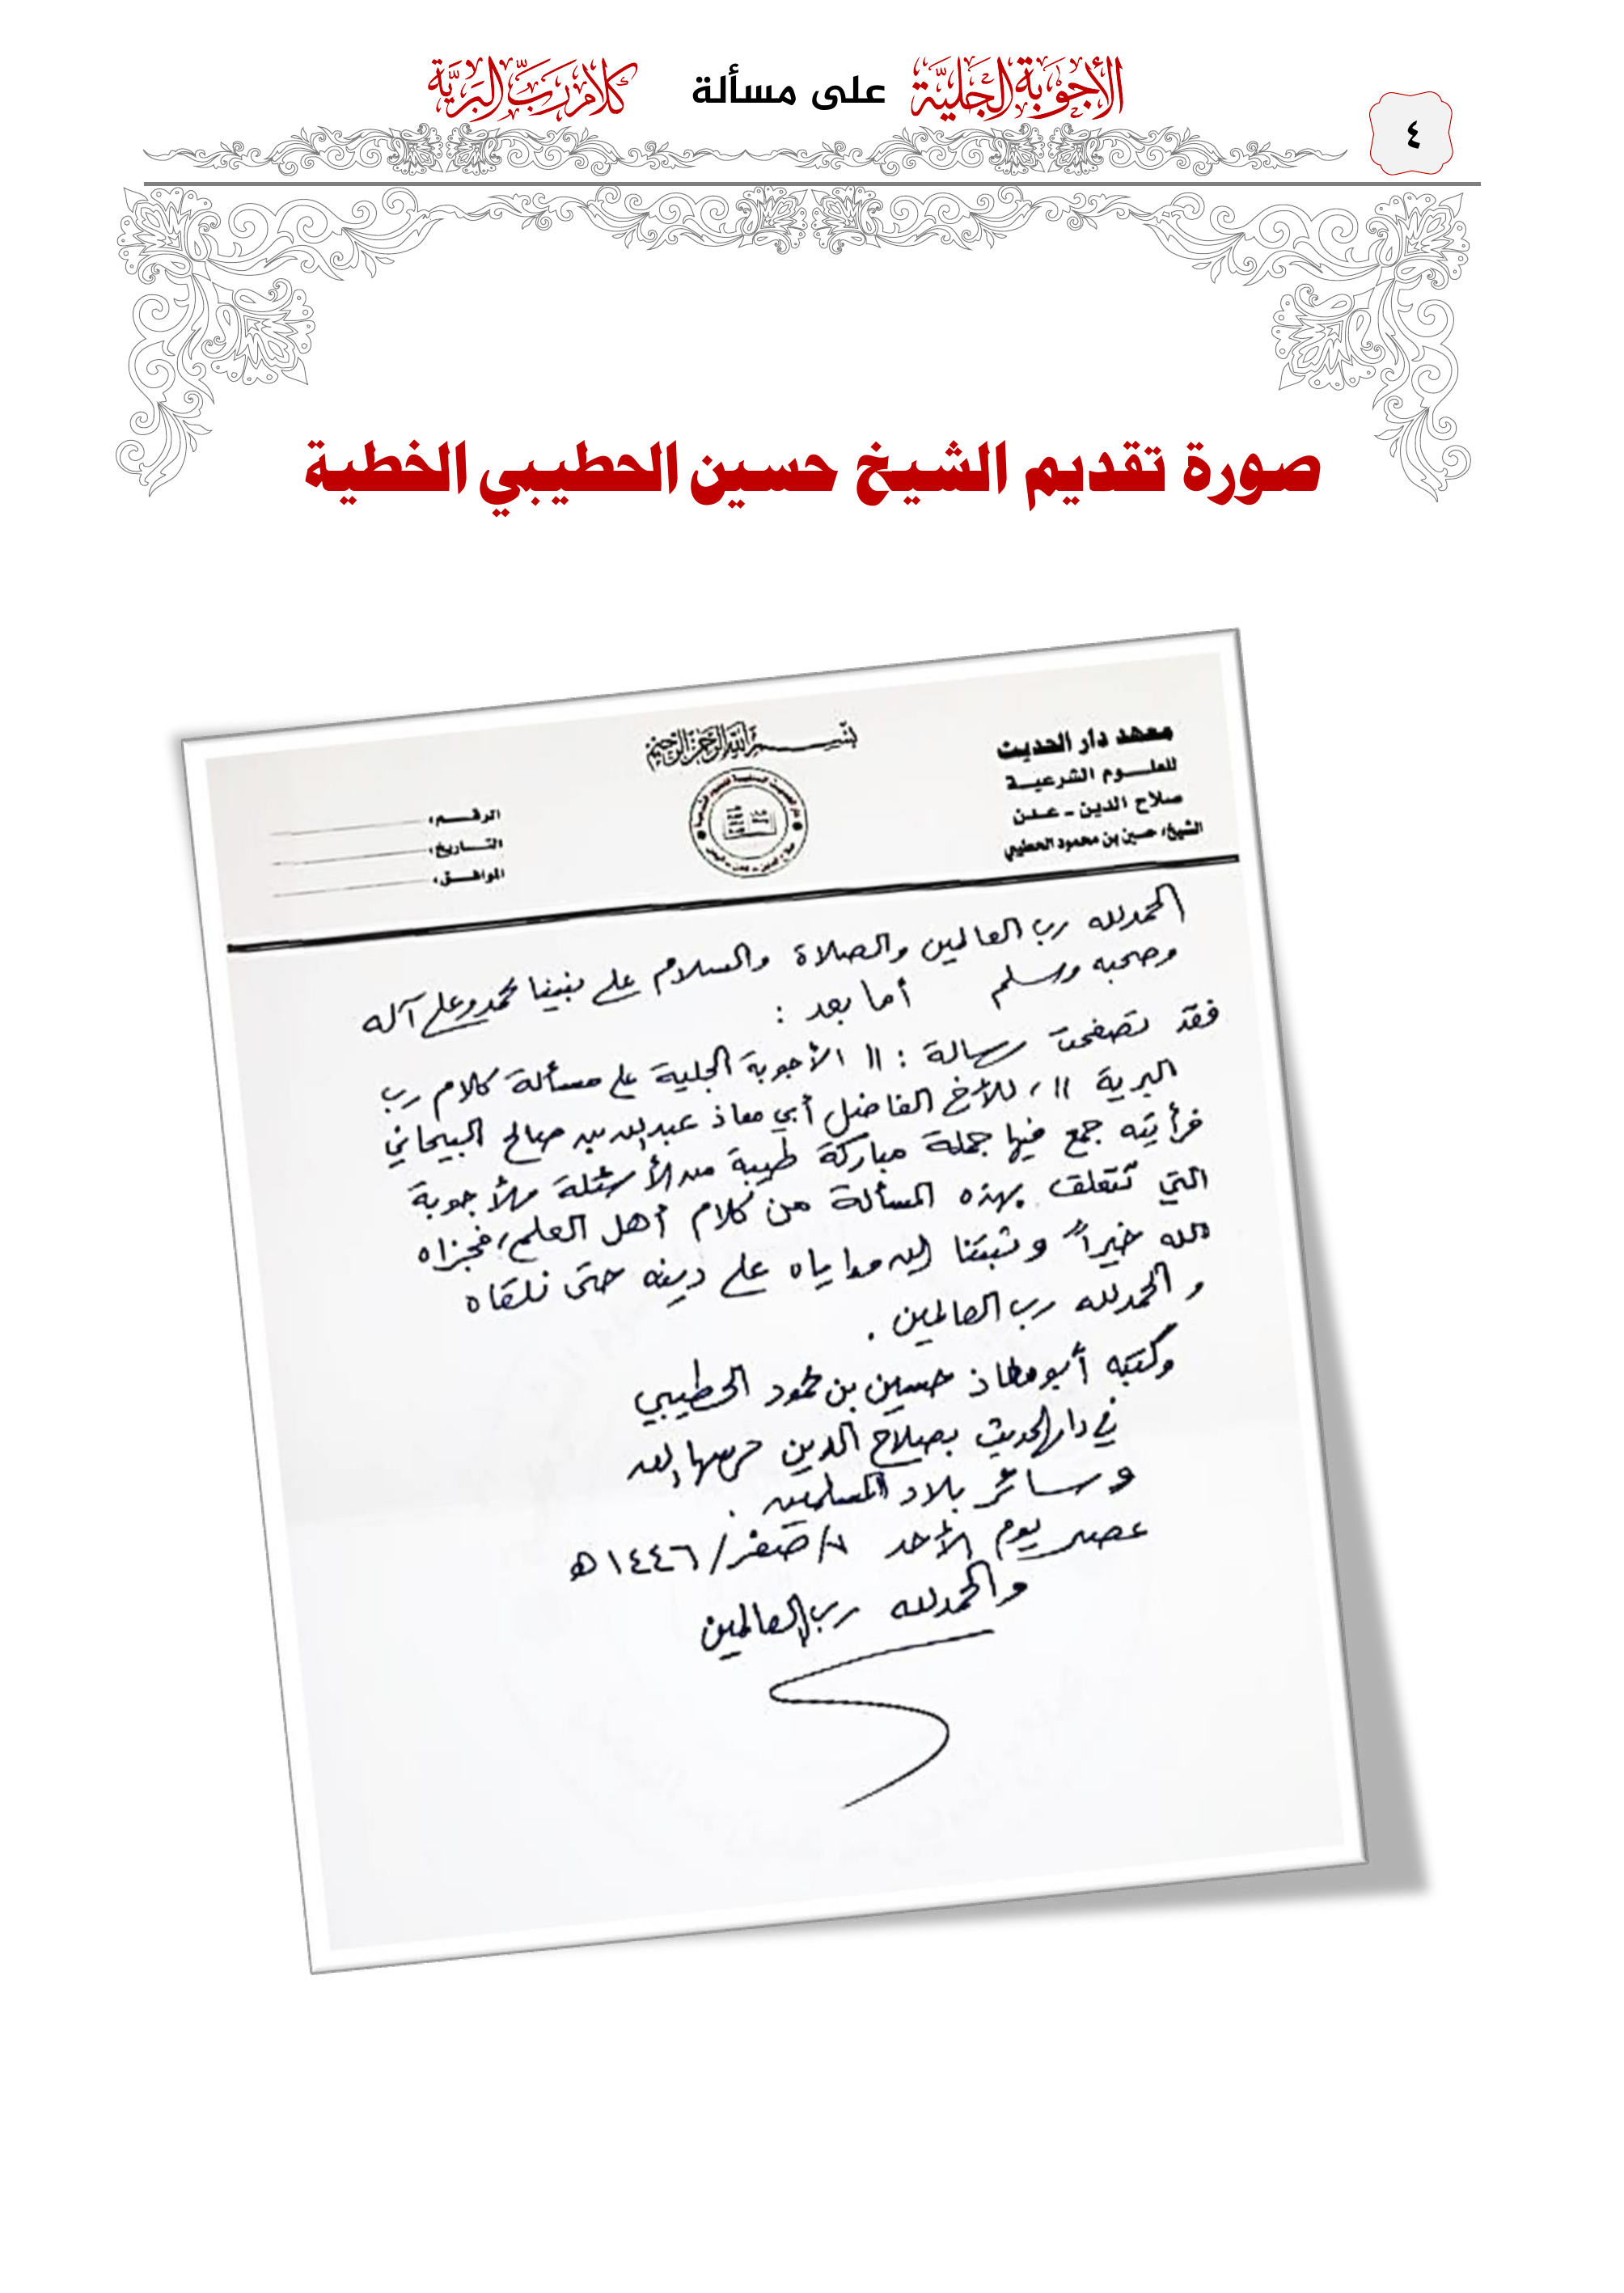 الأجوبة الجلية على مسألة كلام رب البرية
٤
صورة تقديم الشيخ حسين الحطيبي الخطية
بسم الله الرحمن الرحيم
معهد دار الحديث
للعلوم الشرعية
صلاح الدين - عدن
الشيخ/ حسين بن محمود الحطيبي
الرقم:
التاريخ:
الموافق:
الحمد لله رب العالمين والصلاة والسلام على نبينا محمد وعلى آله
وصحبه وسلم أما بعد :
فقد تصفحت رسالة : "الأجوبة الجلية على مسألة كلام رب
البرية"، للأخ الفاضل أبي معاذ عبدالله بن صالح البيحاني
فرأيته جمع فيها جملة مباركة طيبة من الأسئلة والأجوبة
التي تتعلق بهذه المسألة من كلام أهل العلم، فجزاه
الله خيراً وثبتنا الله وإياه على دينه حتى نلقاه
والحمد لله رب العالمين .
وكتبه أبو معاذ حسين بن محمود الحطيبي
في دار الحديث بصلاح الدين حرسها الله
وسائر بلاد المسلمين .
عصر يوم الأحد /صفر/١٤٤٦هـ
والحمد لله رب العالمين